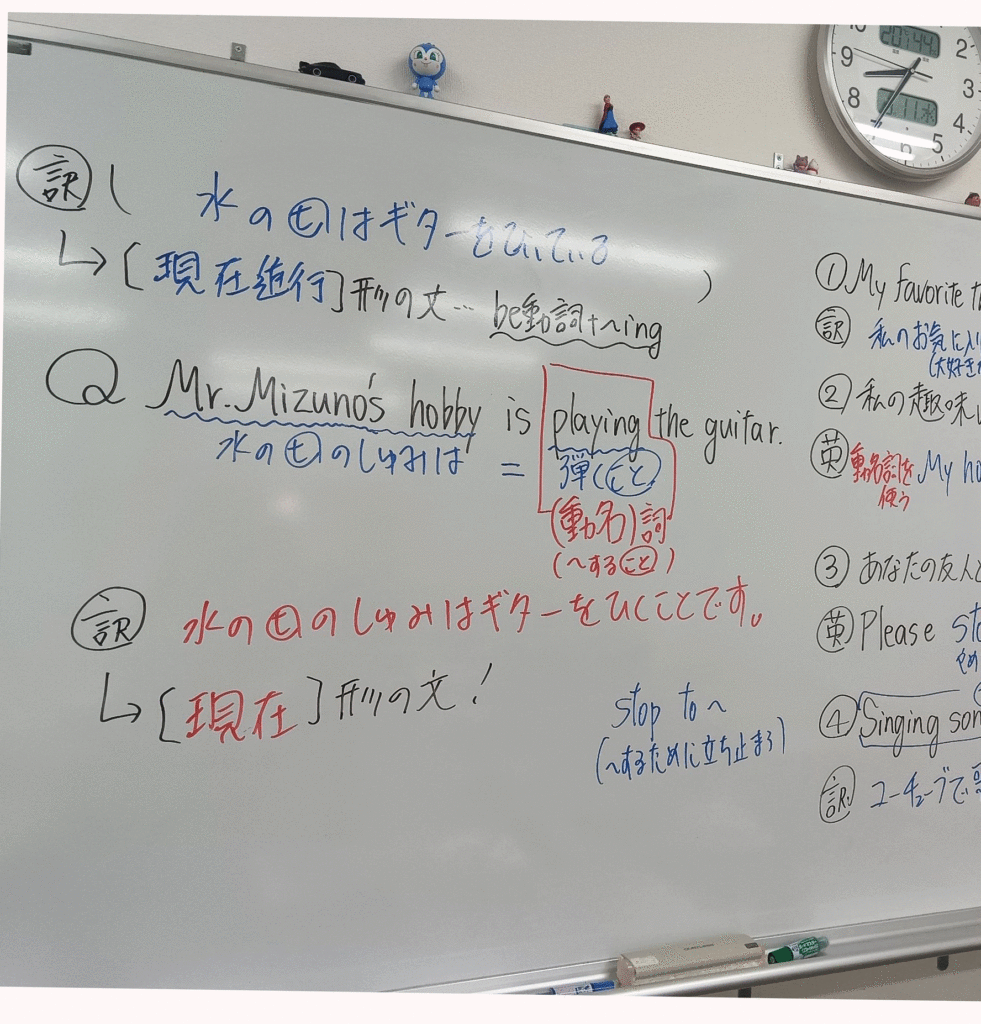 訳 ( 水のもはギターをひいている )
↳ [現在進行]形の文… be動詞+~ing
Q Mr. Mizuno's hobby is playing the guitar.
水のものしゅみは = 弾くこと
(動名)詞
(~すること)
訳 水のものしゅみはギターをひくことです。
↳ [現在]形の文!
stop to ~
(~するために立ち止まる)
① My favorite
訳 私のお気に入り
(大好き
② 私の趣味
英 動名詞を使う My
③ あなたの友人
英 Please
やめ
④ Singing
訳 ユーチューブで
9
8
2
3
4
5
6